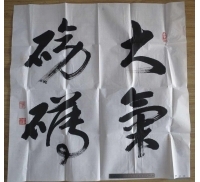 大氣
磅礴